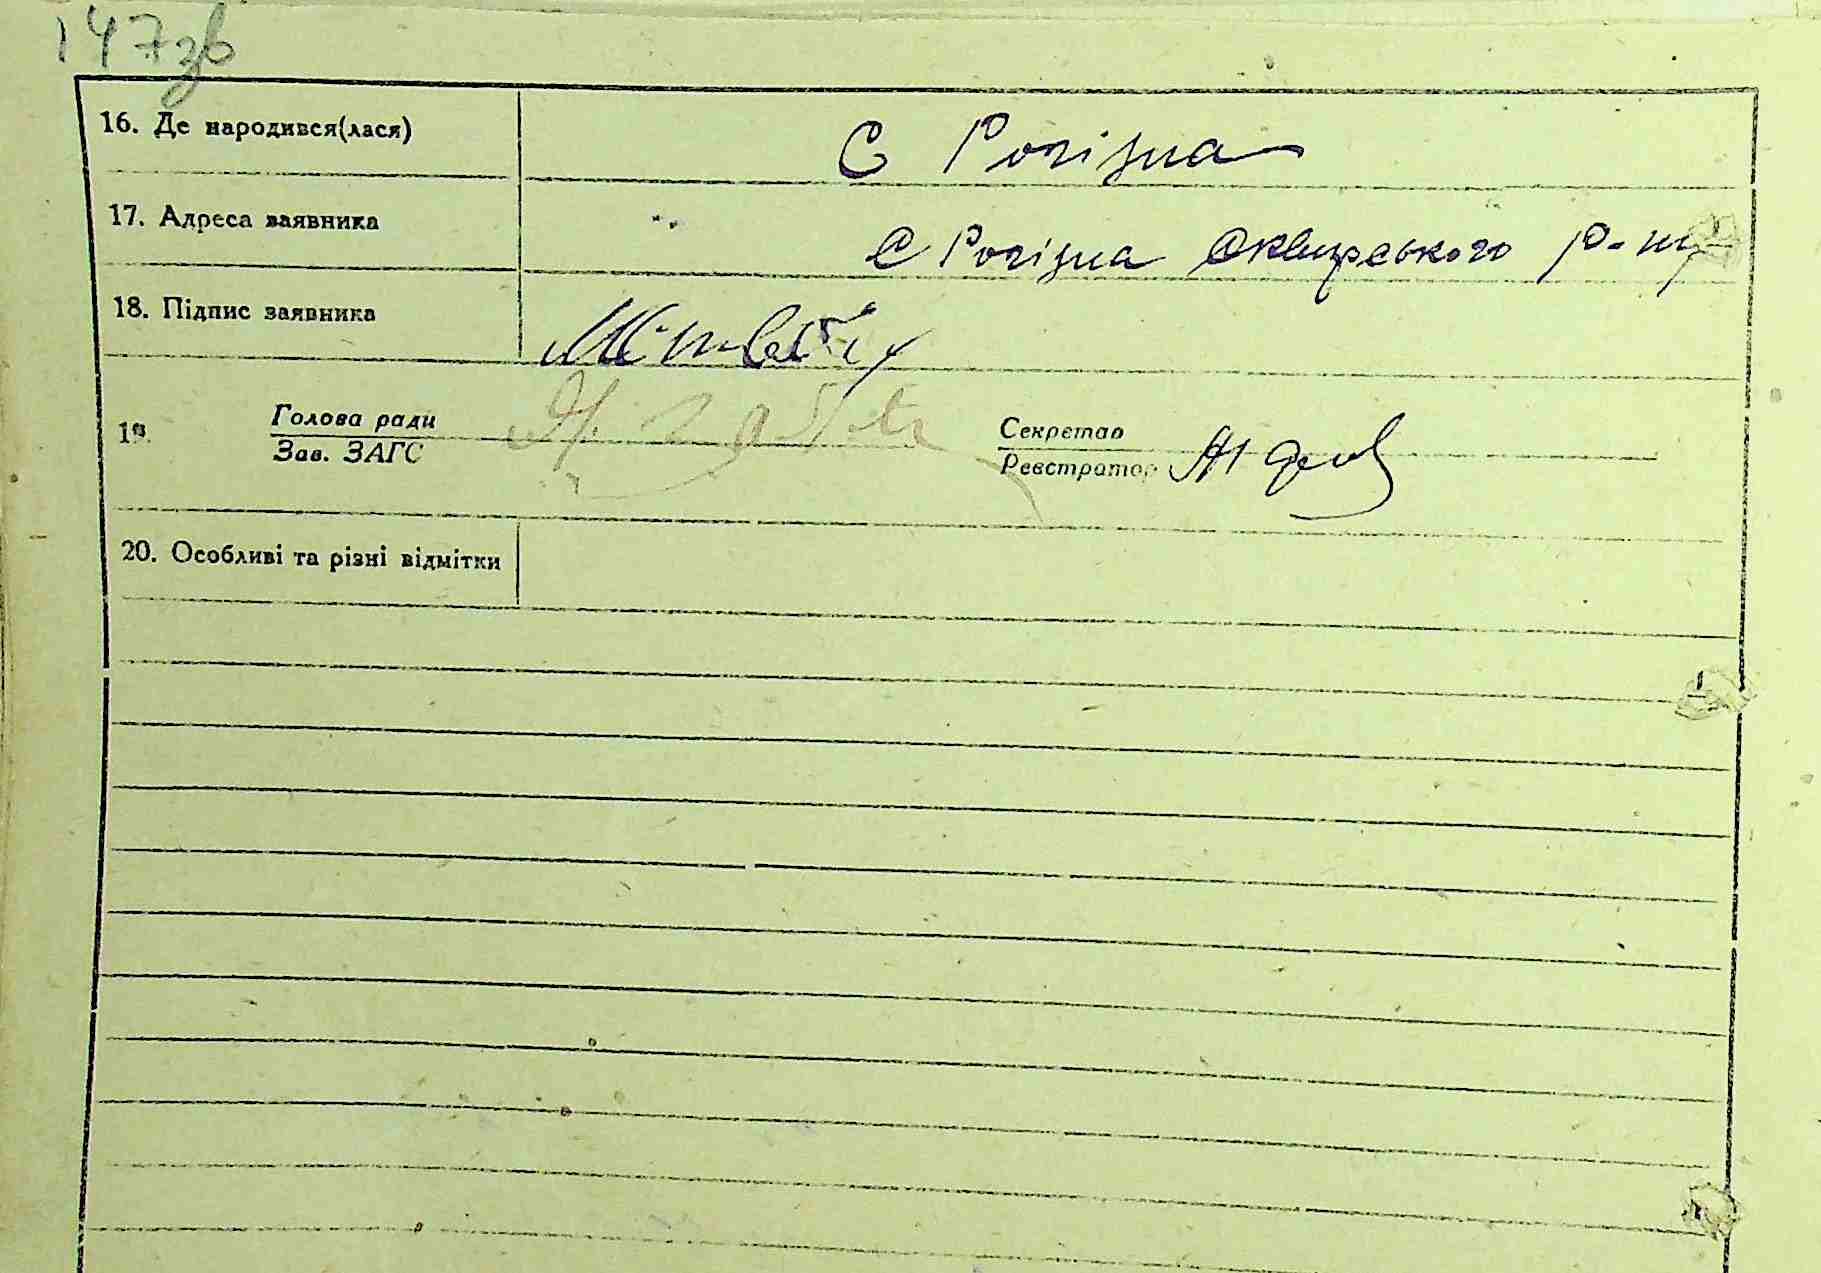 147зв
16. Де народився(лася) С Рогізна
17. Адреса заявника С Рогізна Сквирського р-ну
18. Підпис заявника
19. Голова ради Секретар
Зав. ЗАГС Реєстратор
20. Особливі та різні відмітки